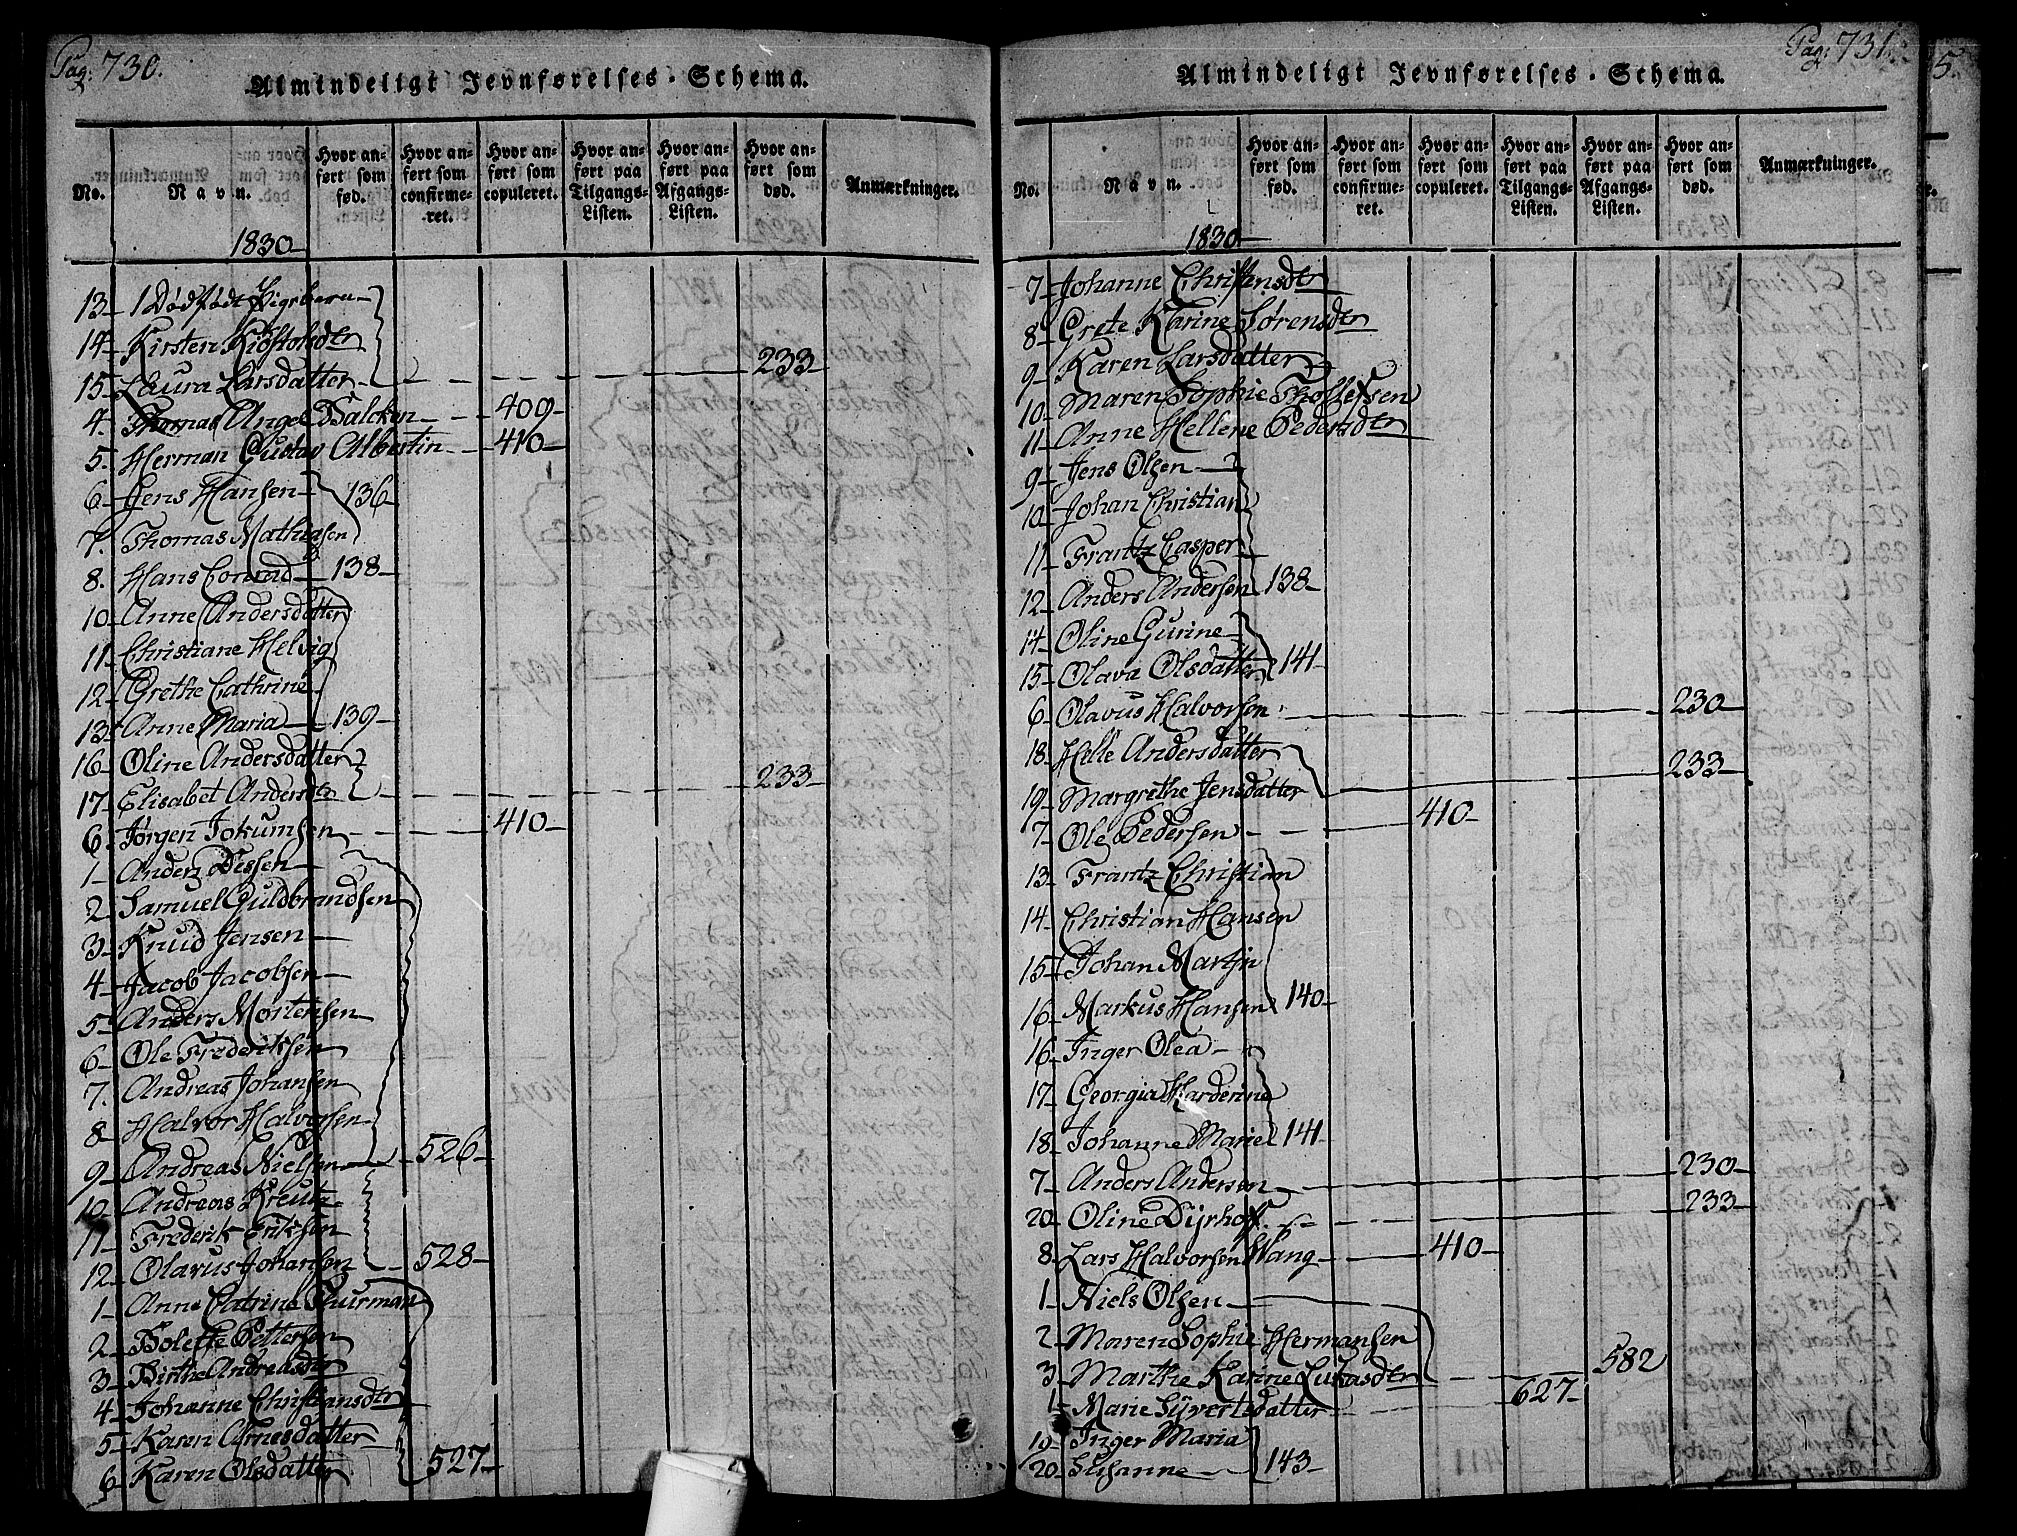 Pag: 730.
Almindeligt Jevnførelses-Schema.
No. Navn. Hvor anført som fød. Hvor anført som confirmeret. Hvor anført som copuleret. Hvor anført paa Tilgangs-Listen. Hvor anført paa Afgangs-Listen. Hvor anført som død. Anmærkninger.
1830
13 1 Dødfødt Pigebarn
14 Kirsten
15 Laura Larsdatter 233
4 Thomas Angel Balcken 409
5. Herman Gustav Albertin 410
6 Jens Hansen 136
7. Thomas Mathiesen
8. Hans Conrad 138
10 Anne Andersdatter
11 Christiane Helvig
12 Grethe Cathrine
13 Anne Maria 139
16 Oline Andersdatter
17 Elisabet Andersdtr 233
6. Jørgen Jokumsen 410
1 Anders Dessen
2 Samuel Guldbrandsen
3 Knud Jensen
4 Jacob Jacobsen
5 Anders Mortensen
6 Ole Frederiksen
7. Andreas Johansen
8 Halvor Halvorsen
9 Andreas Nielsen 526
10 Andreas Kreutz
11 Frederik Eriksen
12 Olavus Johansen 528
1 Anne Catrine Thurman
2 Bolette Pettersen
3 Birthe Andreasdtr
4 Johanne Christiansdtr
5 Karen Arnesdatter
6 Karen Olsdatter 527
Pag: 731.
Almindeligt Jevnførelses-Schema.
No. Navn. Hvor anført som fød. Hvor anført som confirmeret. Hvor anført som copuleret. Hvor anført paa Tilgangs-Listen. Hvor anført paa Afgangs-Listen. Hvor anført som død. Anmærkninger.
1830
7 Johanne Christensdtr
8 Grete Karine Sørensdtr
9 Karen Larsdatter
10 Maren Sophie Thollefsen
11 Anne Hellene Pedersdtr
9 Jens Olsen
10 Johan Christian
11 Frantz Casper
12 Anders Andersen 138
14 Oline Gurine
15 Olava Olsdatter 141
6 Olavus Halvorsen 230
18 Helle Andersdatter
19 Margrethe Jensdatter 233
7 Ole Pedersen 410
13 Frantz Christian
14 Christian Hansen
15 Johan Martin
16 Markus Hansen 140
16 Inger Olea
17 Georgia Harderine
18 Johanne Marie 141
7 Anders Andersen 230
20 Oline Dyrhof 233
8 Lars Halvorsen Wang 410
1 Niels Olsen
2 Maren Sophie Hermansen
3 Marthe Karine Lukasdtr 582
1 Marie Syvertsdatter 627
19 Inger Maria
20 Susanne 143